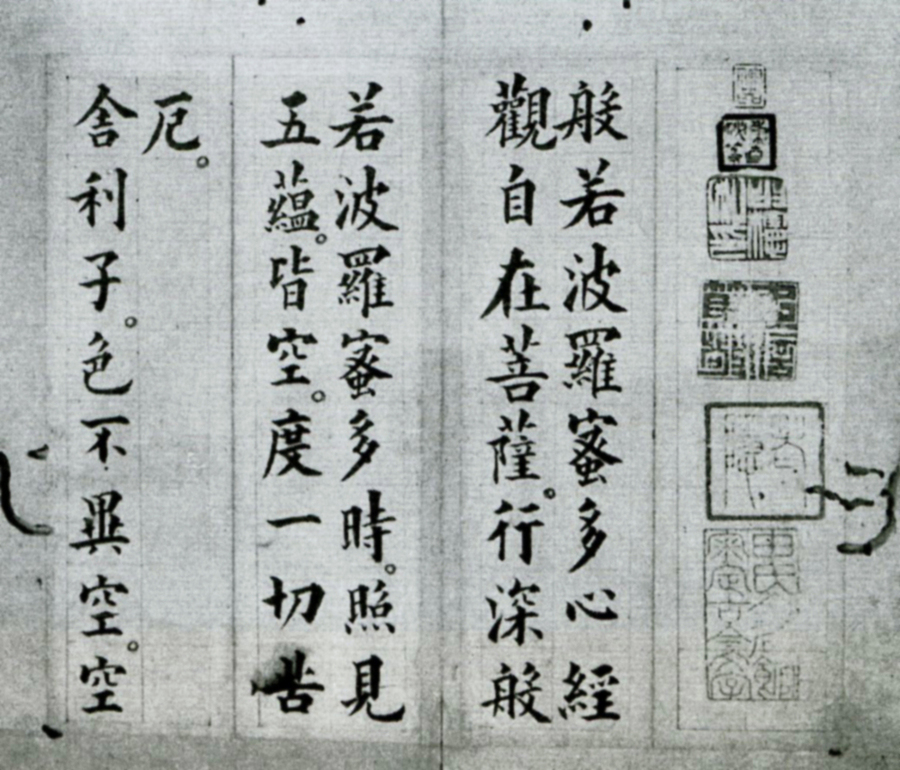 般若波羅蜜多心經
觀自在菩薩。行深般
若波羅蜜多時。照見
五蘊。皆空。度一切苦
厄。
舍利子。色不異空。空